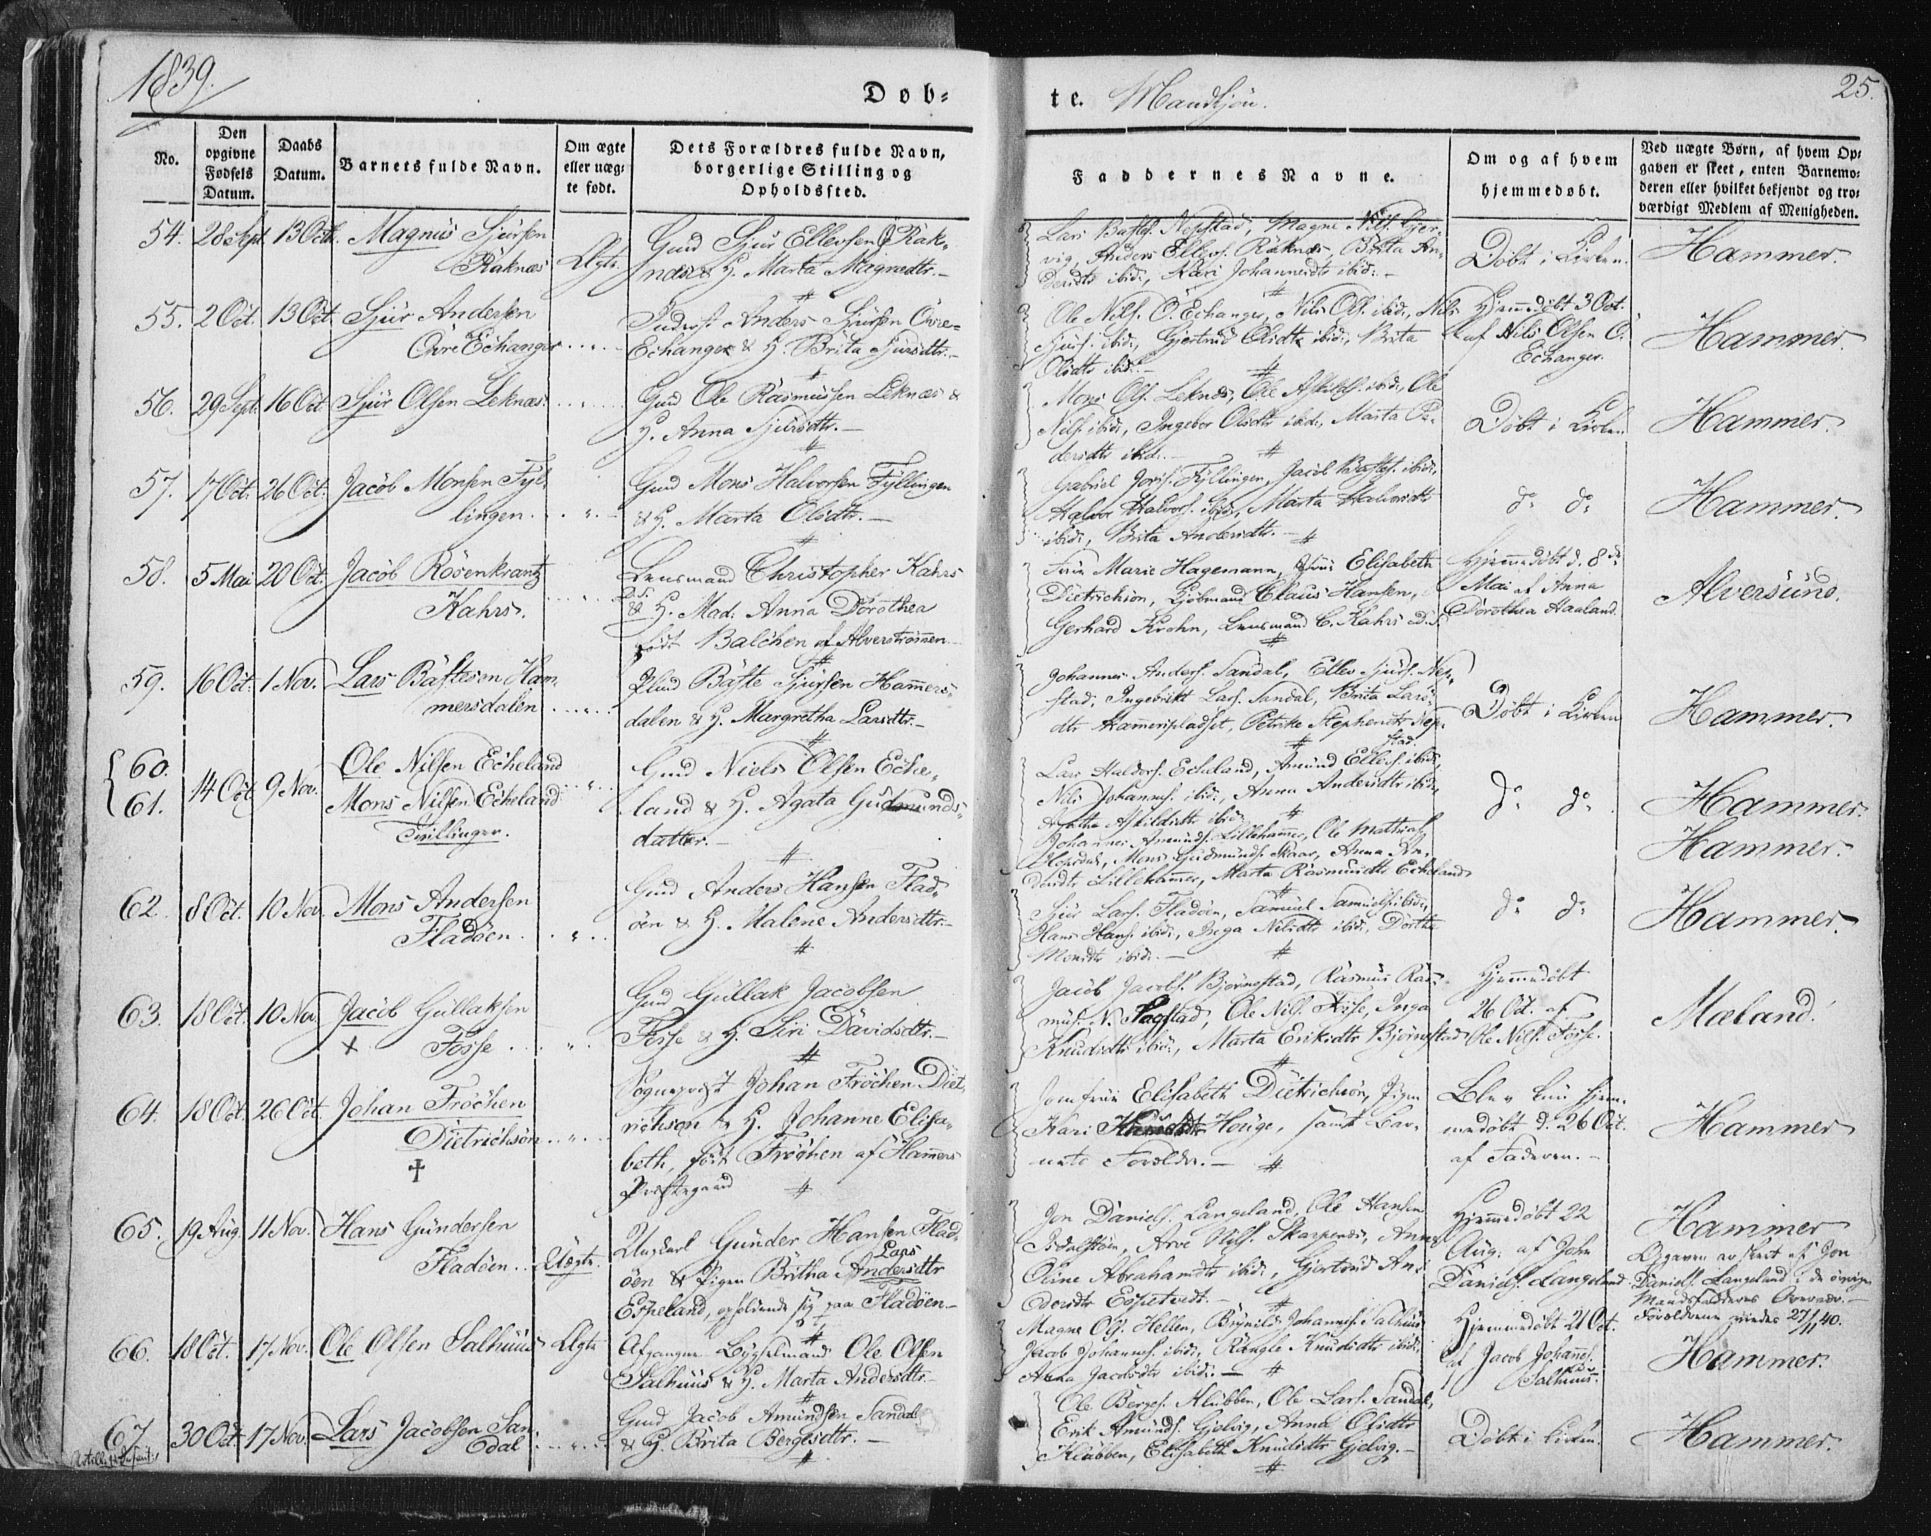 1839.
Døb-
te. Mandkjøn.
25.
No.
Den opgivne Fødsels Datum.
Daabs Datum.
Barnets fulde Navn.
Om ægte eller uæg- te født.
Dets Forældres fulde Navn, borgerlige Stilling og Opholdssted.
Faddernes Navne.
Om og af hvem hjemmedøbt.
Ved uægte Børn, af hvem Op- gaven er skeet, enten Barnemo- deren eller hvilket bekjendt og tro- værdigt Medlem af Menigheden.
54. 28 Sept. 13 Oct. Magnus Sjursen
Raknæs Ægte
Gmd Sjur Ellevsen Rak-
næs & H. Marta Magnedtr.
Lars Nepstad, Magne Nils.
vig, Anders Ellevs. Raknæs, Brita An-
dersdtr ibid., Kari Johannesdtr ibid.
Døbt i Kirken.
Hammer.
55. 2 Oct. 13 Oct. Sjur Andersen
Øvre Echanger
Anders Sjursen Øvre-
Echanger & H. Brita Sjursdtr.
Ole Nils. Ø. Echanger, Nils Ols. ibid., Nils
Sjurs. ibid., Gjertrud Olsdtr ibid., Brita
Olsdtr ibid.
Hjemmedøbt 3 Oct.
af Nils Olsen Ø.
Echanger.
Hammer.
56. 29 Sept. 16 Oct. Sjur Olsen Leknæs.
Gmd Ole Rasmussen Leknæs &
H. Anna Sjursdtr.
Mons Ols. Leknæs, Ole ibid., Ole
Nils. ibid., Ingebor Olsdtr ibid., Marta Pe-
dersdtr ibid.
Døbt i Kirken
Hammer.
57. 17 Oct. 26 Oct. Jacob Monsen Fyl-
lingen.
Gmd Mons Halvorsen Fyllingen
& H. Marta Olsdtr.
Gabriel Fyllingen, Jacob ibid.,
Halvor Halvors. ibid., Marta Halvorsdtr
ibid., Brita Andersdtr.
do do
Hammer.
58. 5 Mai 20 Oct. Jacob Rosenkrantz
Kahrs.
Lensmand Christopher Kahrs
& H. Mad. Anna Dorothea
født Balchen af Alverstrømmen
Frue Marie Hagemann, Elisabeth
Dietrichson, Kjøbmand Claus Hansen,
Gerhard Krohn, Lensmand C. Kahrs D.S.
Hjemmedøbt d. 8de
Mai af Anna
Dorothea Haaland
Alversund.
59. 16 Oct. 1 Nov. Lars Baftesen Ham-
mersdalen
Bafte Sjursen Hammers-
dalen & H. Margretha Larsdtr.
Johannes Anders. Sandal, Ellev Sjurs. Nep-
stad, Ingebrikt Lars. Sandal, Brita Lars-
dtr Hammerspladset, Petrike Stephensdtr Nep-
stad.
Døbt i Kirken
Hammer.
60. 61. 14 Oct. 9 Nov. Ole Nilsen Echeland
Mons Nilsen Echeland
Tvillinger.
Gmd Niels Olsen Eche-
land & H. Agata Gudmunds-
datter.
Lars Haldors. Echeland, Amund Ellevs. ibid.,
Nils Johannes. ibid., Anna Andersdtr ibid.,
Agatha Askildsdtr ibid.
Johannes Amunds. Lillehammer, Ole Mathias.
Mons Gudmunds. Skaar, Anna An-
dersdtr Lillehammer, Marta Rasmusdtr Echeland
do do
Hammer.
Hammer.
62. 8 Oct. 10 Nov. Mons Andersen
Fladøen.
Gmd Anders Hansen Flad-
øen & H. Malene Andersdtr.
Sjur Lars. Fladøen, Samuel Samuels. ibid.,
Hans Hans. ibid., Inga Nilsdtr ibid., Dorthe
Monsdtr ibid.
do do
Hammer.
63. 18 Oct. 10 Nov. Jacob Gullaksen
× Fosse
Gmd Gullak Jacobsen
Fosse & H. Siri Davidsdtr.
Jacob Jacobs. Bjørnestad, Rasmus Ras-
mus. N. Hagstad, Ole Nils. Fosse, Inga
Knudsdtr ibid., Marta Eriksdtr Bjørnestad
Hjemmedøbt
26 Oct. af
Ole Nils. Fosse.
Mæland.
64. 18 Oct. 26 Oct. Johan Frøchen
Dietrichson
†
Sogneprest Johan Frøchen Diet-
richson & H. Johanne Elisa-
beth, født Frøchen af Hammers
Prestegaard
Jomfrue Elisabeth Dietrichson, Pigen
Kari Houge, samt Bar-
nets Forældre.
Blev kun hjem-
medøbt d. 26 Oct.
af Faderen.
Hammer
65. 19 Aug. 11 Nov. Hans Gundersen
Fladøen Uægte.
Ungkarl Gunder Hansen Flad-
øen & Pigen Britha Lars Andersdtr
Espeland, opholdende sig paa Fladøen
Jon Daniels. Langeland, Ole Hansen
Isdalstøen, Arve Skarpenes, Anne
Oline Abrahamsdtr ibid., Gjertrud An-
dersdtr
Hjemmedøbt 22
Aug. af John
Daniels. Langeland
Hammer
Opgaven er skeet af Jon
Daniels. Langeland & de øvrige
Mandsfadderes Overvær.
Forældrene viede 27/11 40.
66. 18 Oct. 17 Nov. Ole Olsen Salhuus Ægte
Afgangne Bøgselmand Ole Olsen
Salhuus & H. Marta Andersdtr.
Magne Ols. Hellen, Brynild Johannes. Salhuus
Jacob Johannes. ibid., Rangle Knudsdtr ibid.,
Anna Jacobsdtr ibid.
Hjemmedøbt 21 Oct.
af Jacob Johannes.
Salhuus.
Hammer.
67. 30 Oct. 17 Nov. Lars Jacobsen San-
dal
Gmd Jacob Amundsen Sandal
& H. Brita Bergesdtr.
Ole Berges. Klubben, Ole Lars. Sandal,
Erik Amunds. Gjelvig, Anna Olsdtr
Klubben, Elisabeth Knudsdtr Gjelvig.
Døbt i Kirken.
Hammer.